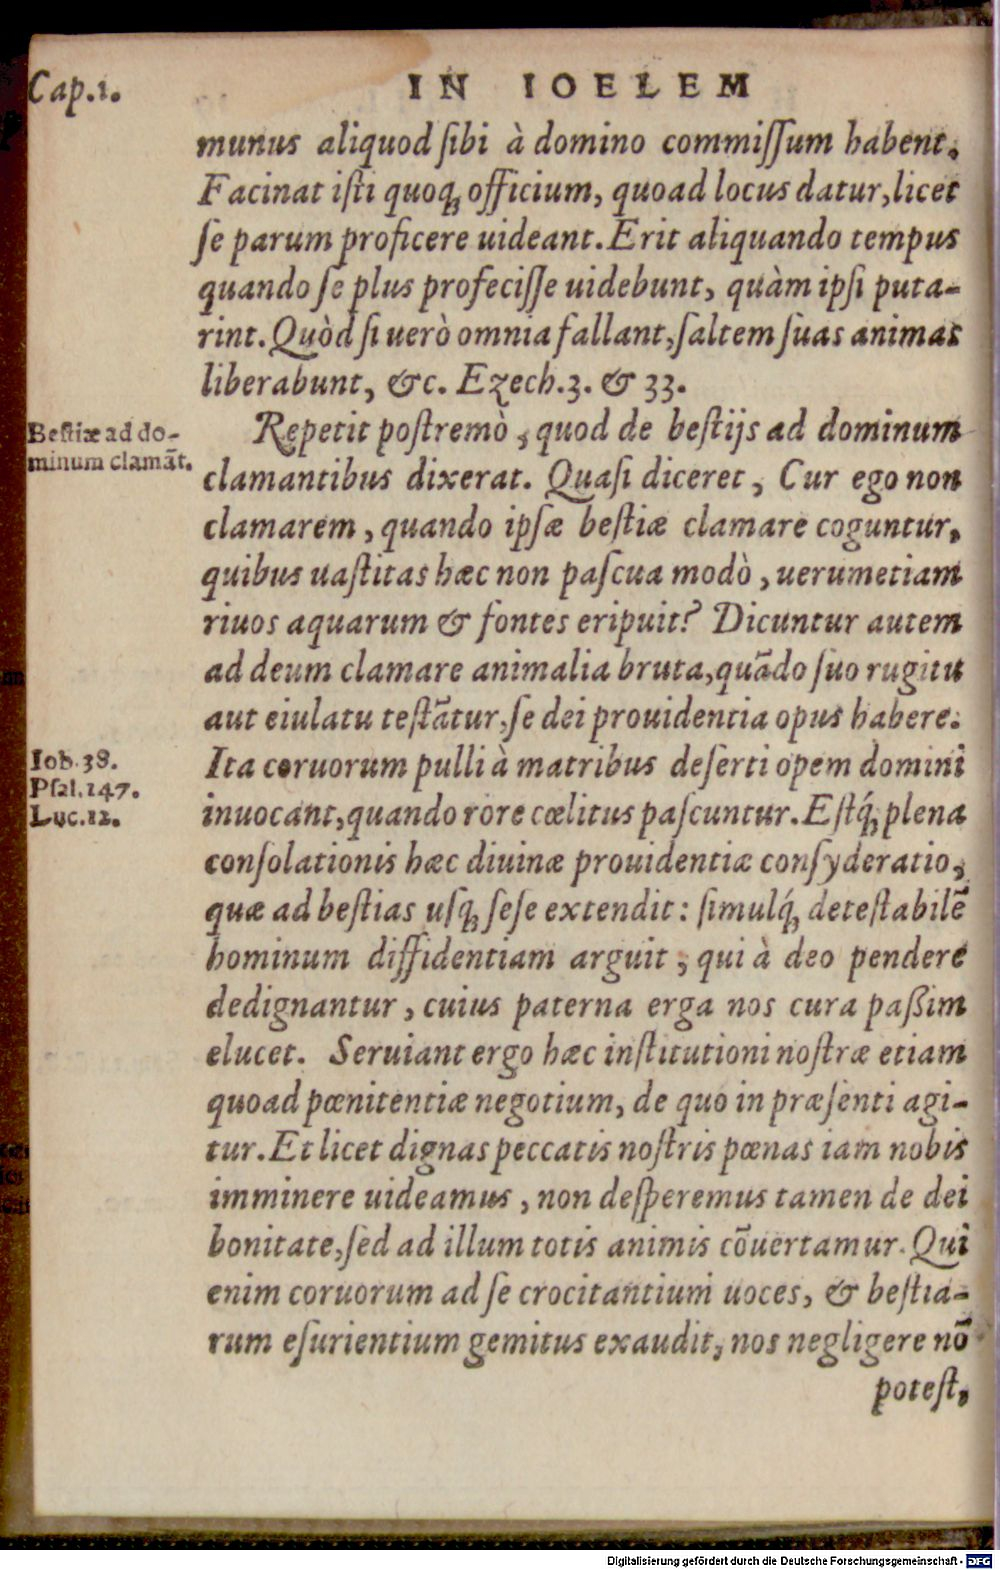 Cap.1.
IN IOELEM
munus aliquod ſibi à domino commiſſum habent.
Facinat iſti quoqꝫ officium, quoad locus datur, licet
ſe parum proficere uideant. Erit aliquando tempus
quando ſe plus profeciſſe uidebunt, quàm ipſi puta-
rint. Quòd ſi uerò omnia fallant, ſaltem ſuas animas
liberabunt, &c. Ezech.3. & 33.
Beſtiæ ad do-
minum clamāt.
Repetit poſtremò, quod de beſtijs ad dominum
clamantibus dixerat. Quaſi diceret, Cur ego non
clamarem, quando ipſæ beſtiæ clamare coguntur,
quibus uaſtitas hæc non paſcua modò, uerumetiam
riuos aquarum & fontes eripuit? Dicuntur autem
ad deum clamare animalia bruta, quādo ſuo rugitu
aut eiulatu teſtātur, ſe dei prouidentia opus habere.
Iob.38.
Pſal.147.
Luc.12.
Ita coruorum pulli à matribus deſerti opem domini
inuocant, quando rore cœlitus paſcuntur. Eſtq́ꝫ plena
conſolationis hæc diuinæ prouidentiæ conſyderatio,
quæ ad beſtias uſqꝫ ſeſe extendit: ſimulq́ꝫ deteſtabilē
hominum diffidentiam arguit, qui à deo pendere
dedignantur, cuius paterna erga nos cura paßim
elucet. Seruiant ergo hæc inſtitutioni noſtræ etiam
quoad pœnitentiæ negotium, de quo in præſenti agi-
tur. Et licet dignas peccatis noſtris pœnas iam nobis
imminere uideamus, non deſperemus tamen de dei
bonitate, ſed ad illum totis animis cōuertamur. Qui
enim coruorum ad ſe crocitantium uoces, & beſtia-
rum eſurientium gemitus exaudit, nos negligere nō
poteſt,
Digitalisierung gefördert durch die Deutsche Forschungsgemeinschaft - DFG